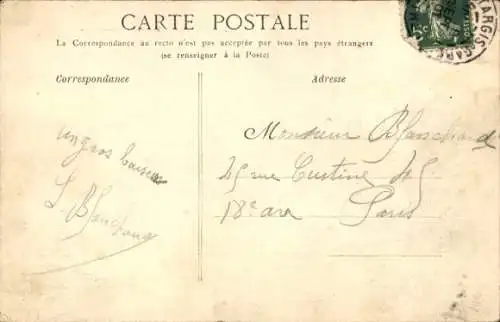 CARTE POSTALE
La Correspondance au recto n'est pas acceptée par tous les pays étrangers
(se renseigner à la Poste)
Correspondance
Adresse
un gros baiser
Monsieur Blanchard
45 rue Custine 45
18e arr Paris